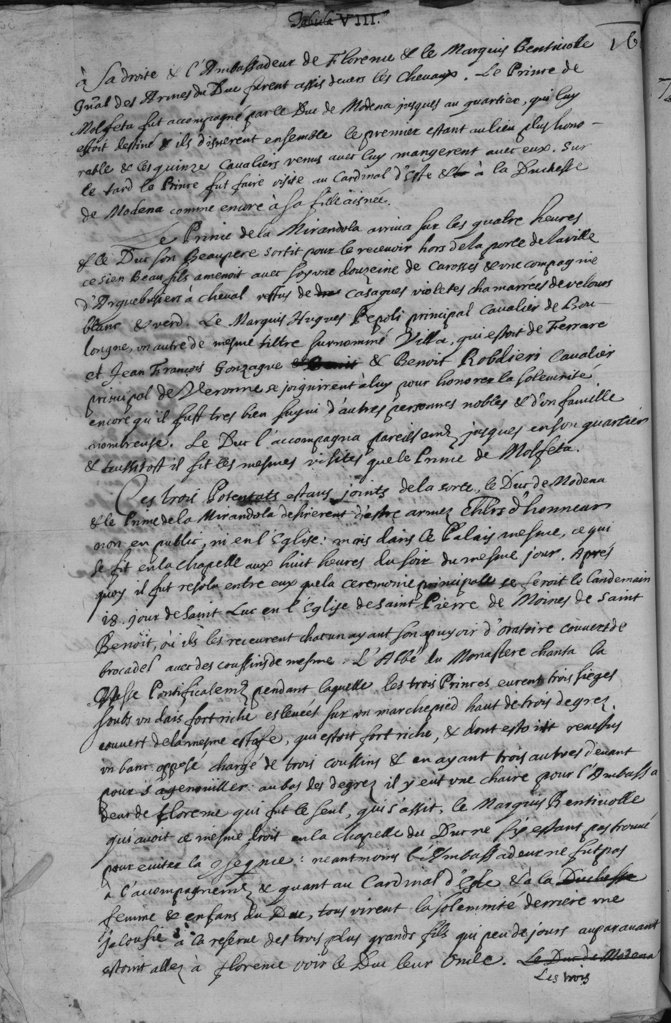 Tabula VIII.
16
à Sa droite & l'Ambassadeur de Florence & le Marquis Bentivolle
gn̄al des Armes du Duc furent assis devers les Chevaux. Le Prince de
Molfeta fut accompagné par le Duc de Modena jusques au quartier, qui luy
estoit destiné & ils disnerent ensemble le premier estant au lieu plus hono-
rable & les quinze Cavaliers venus avec luy mangerent avec eux. Sur
le tard le Prince fut faire visite au Cardinal d'Este & à la Duchesse
de Modena comme encore à sa fille aisnée.
Le Prince de la Mirandola arriva sur les quatre heures
& le Duc son Beaupere sortit pour le recevoir hors de la porte de la ville
ce sien Beau fils amenoit avec soy une douzeine de Carosses & une compagnie
d'Arquebusiers à cheval vestus de casaques violetes chamarrées de velours
blanc & verd. Le Marquis Hugues Pepoli principal Cavalier de Bou-
longne, un autre de mesme tiltre surnommé Villa, qui estoit de Ferrare
et Jean François Gonzague & Benoit Robdieri Cavalier
principal de Veronne se joignirent à luy pour honorer la solemnité
encore qu'il fust tres bien suyvi d'autres personnes nobles & d'un famille
nombreuse. Le Duc l'accompagna pareillem̄t jusques en son quartier
& tussitost il fit les mesmes visites que le Prince de Molfeta.
Ces trois Potentats estans joints de la sorte, le Duc de Modena
& le Prince de la Mirandola desirerent d'estre armez Chlrs d'honneur
non en public, ni en l'Eglise: mais dans le Palais mesme, ce qui
se fit en la chapelle aux huit heures du soir du mesme jour. Apres
quoy il fut resolu entre eux que la ceremonie principale se feroit le landemain
18. jour de Saint Luc en l'Eglise de Saint Pierre de Moines de Saint
Benoit, où ils les receurent chacun ayant son apuyoir d'oratoire couvert de
brocadel avec des coussins de mesme. L'Abbé du Monastere chanta la
Messe Pontificalem̄t pendant laquelle les trois Princes eurent trois sieges
soubs un dais fort riche eslevez sur un marchepied haut de trois degrez
couvert de la mesme estofe, qui estoit fort riche, & dont estoit revestu
un banc opposé chargé de trois coussins & en ayant trois autres devant
pour s'agenouiller. au bas des degrez il y eut une chaire pour l'Ambassa
deur de Florence qui fut le seul, qui s'assit, le Marquis Bentivolle
qui avoit ce mesme droit en la chapelle du Duc ne s'y estans pas trouvé
pour eviter la : neantmoins l'Ambassadeur ne fut pas
à l'accompagnem̄t & quant au Cardinal d'Este & à la Duchesse
femme & enfans du Duc, tous virent la solemnité derriere une
jalousie à la reserve des trois plus grands fils qui peu de jours auparavant
estoint allez à Florence voir le Duc leur Oncle. Le Duc de Modena
Les trois